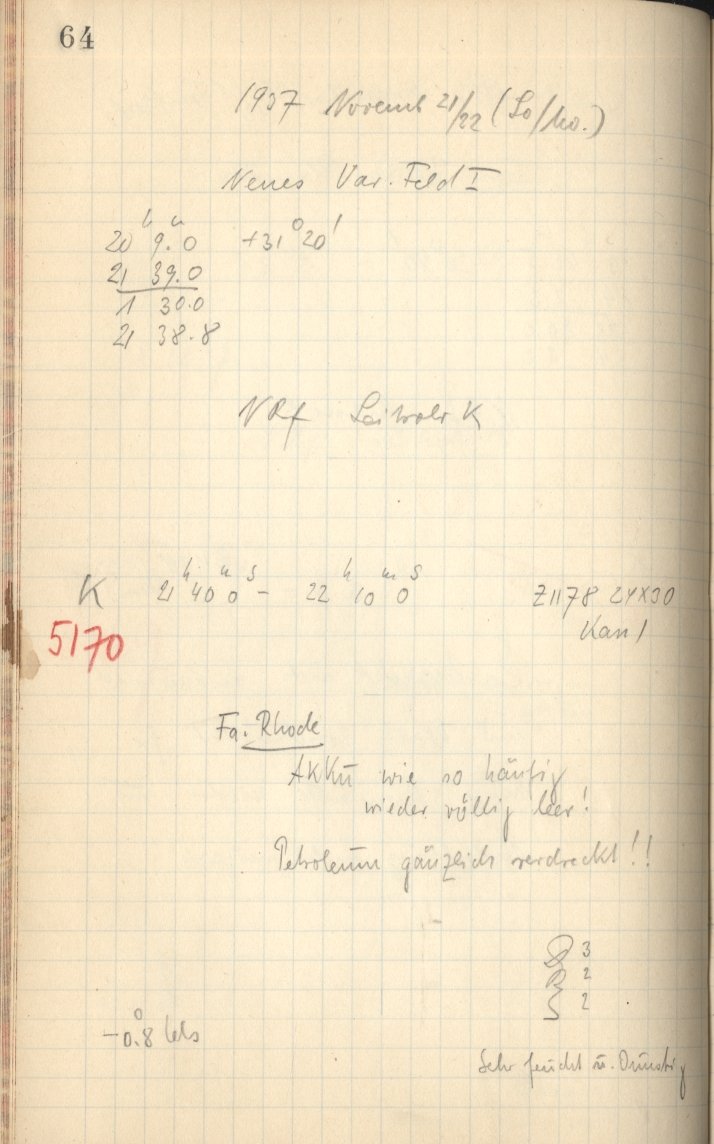 64
1937 Novemb 21/22 (So/Mo.)
Neues Var. Feld I
20 h 9.0 m +31° 20'
21 39.0
1 30.0
21 38.8
NRf Leitrohr K
K 21 h 40 m 0 s - 22 h 10 m 0 s Z1178 24X30
5170 Kan 1
Fa. Rhode
AKKu wie so häufig
wieder völlig leer!
Petroleum gänzlich verdreckt!!
3
R 2
2
-0.°8 Cels
Sehr feucht u. Dunstig